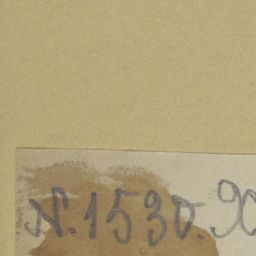 N. 1530.